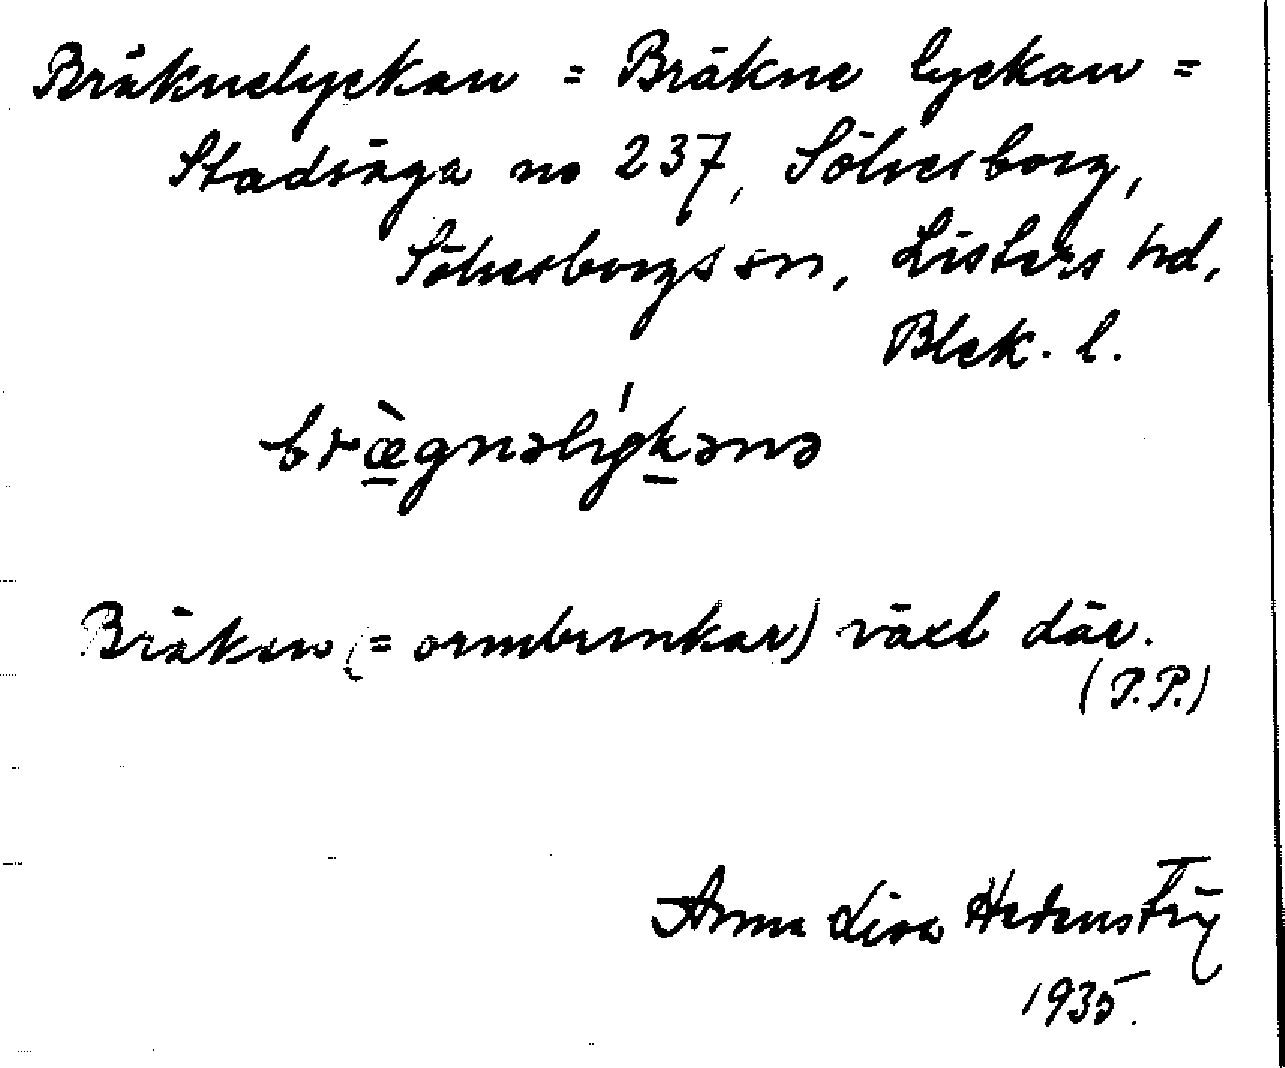 Bräknelyckan = Bräkne lyckan =
Stadsäga no 237, Sölvesborg,
Sölvesborgs sn, Listers hd,
Blek. l.
bræ̀gnəlýkənə
Bräken (= ormbunkar) växt där.
(P.P.)
Anna Lisa Hedenstig
1935.